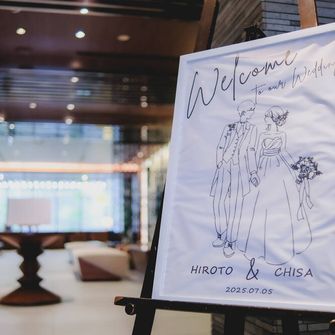 Welcome
to our Wedding
HIROTO & CHISA
2025.07.05